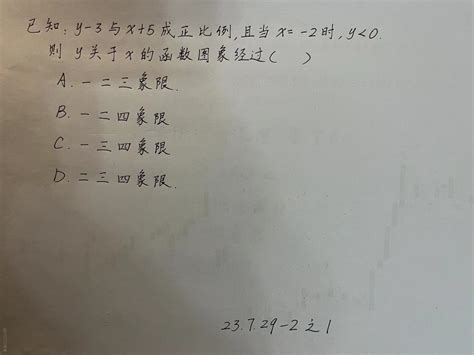 已知：y-3与x+5成正比例，且当x=-2时，y<0.
则 y关于x的函数图象经过（ ）
A. 一二三象限.
B. 一二四象限
C. 一三四象限
D. 二三四象限.
23.7.29-2之1